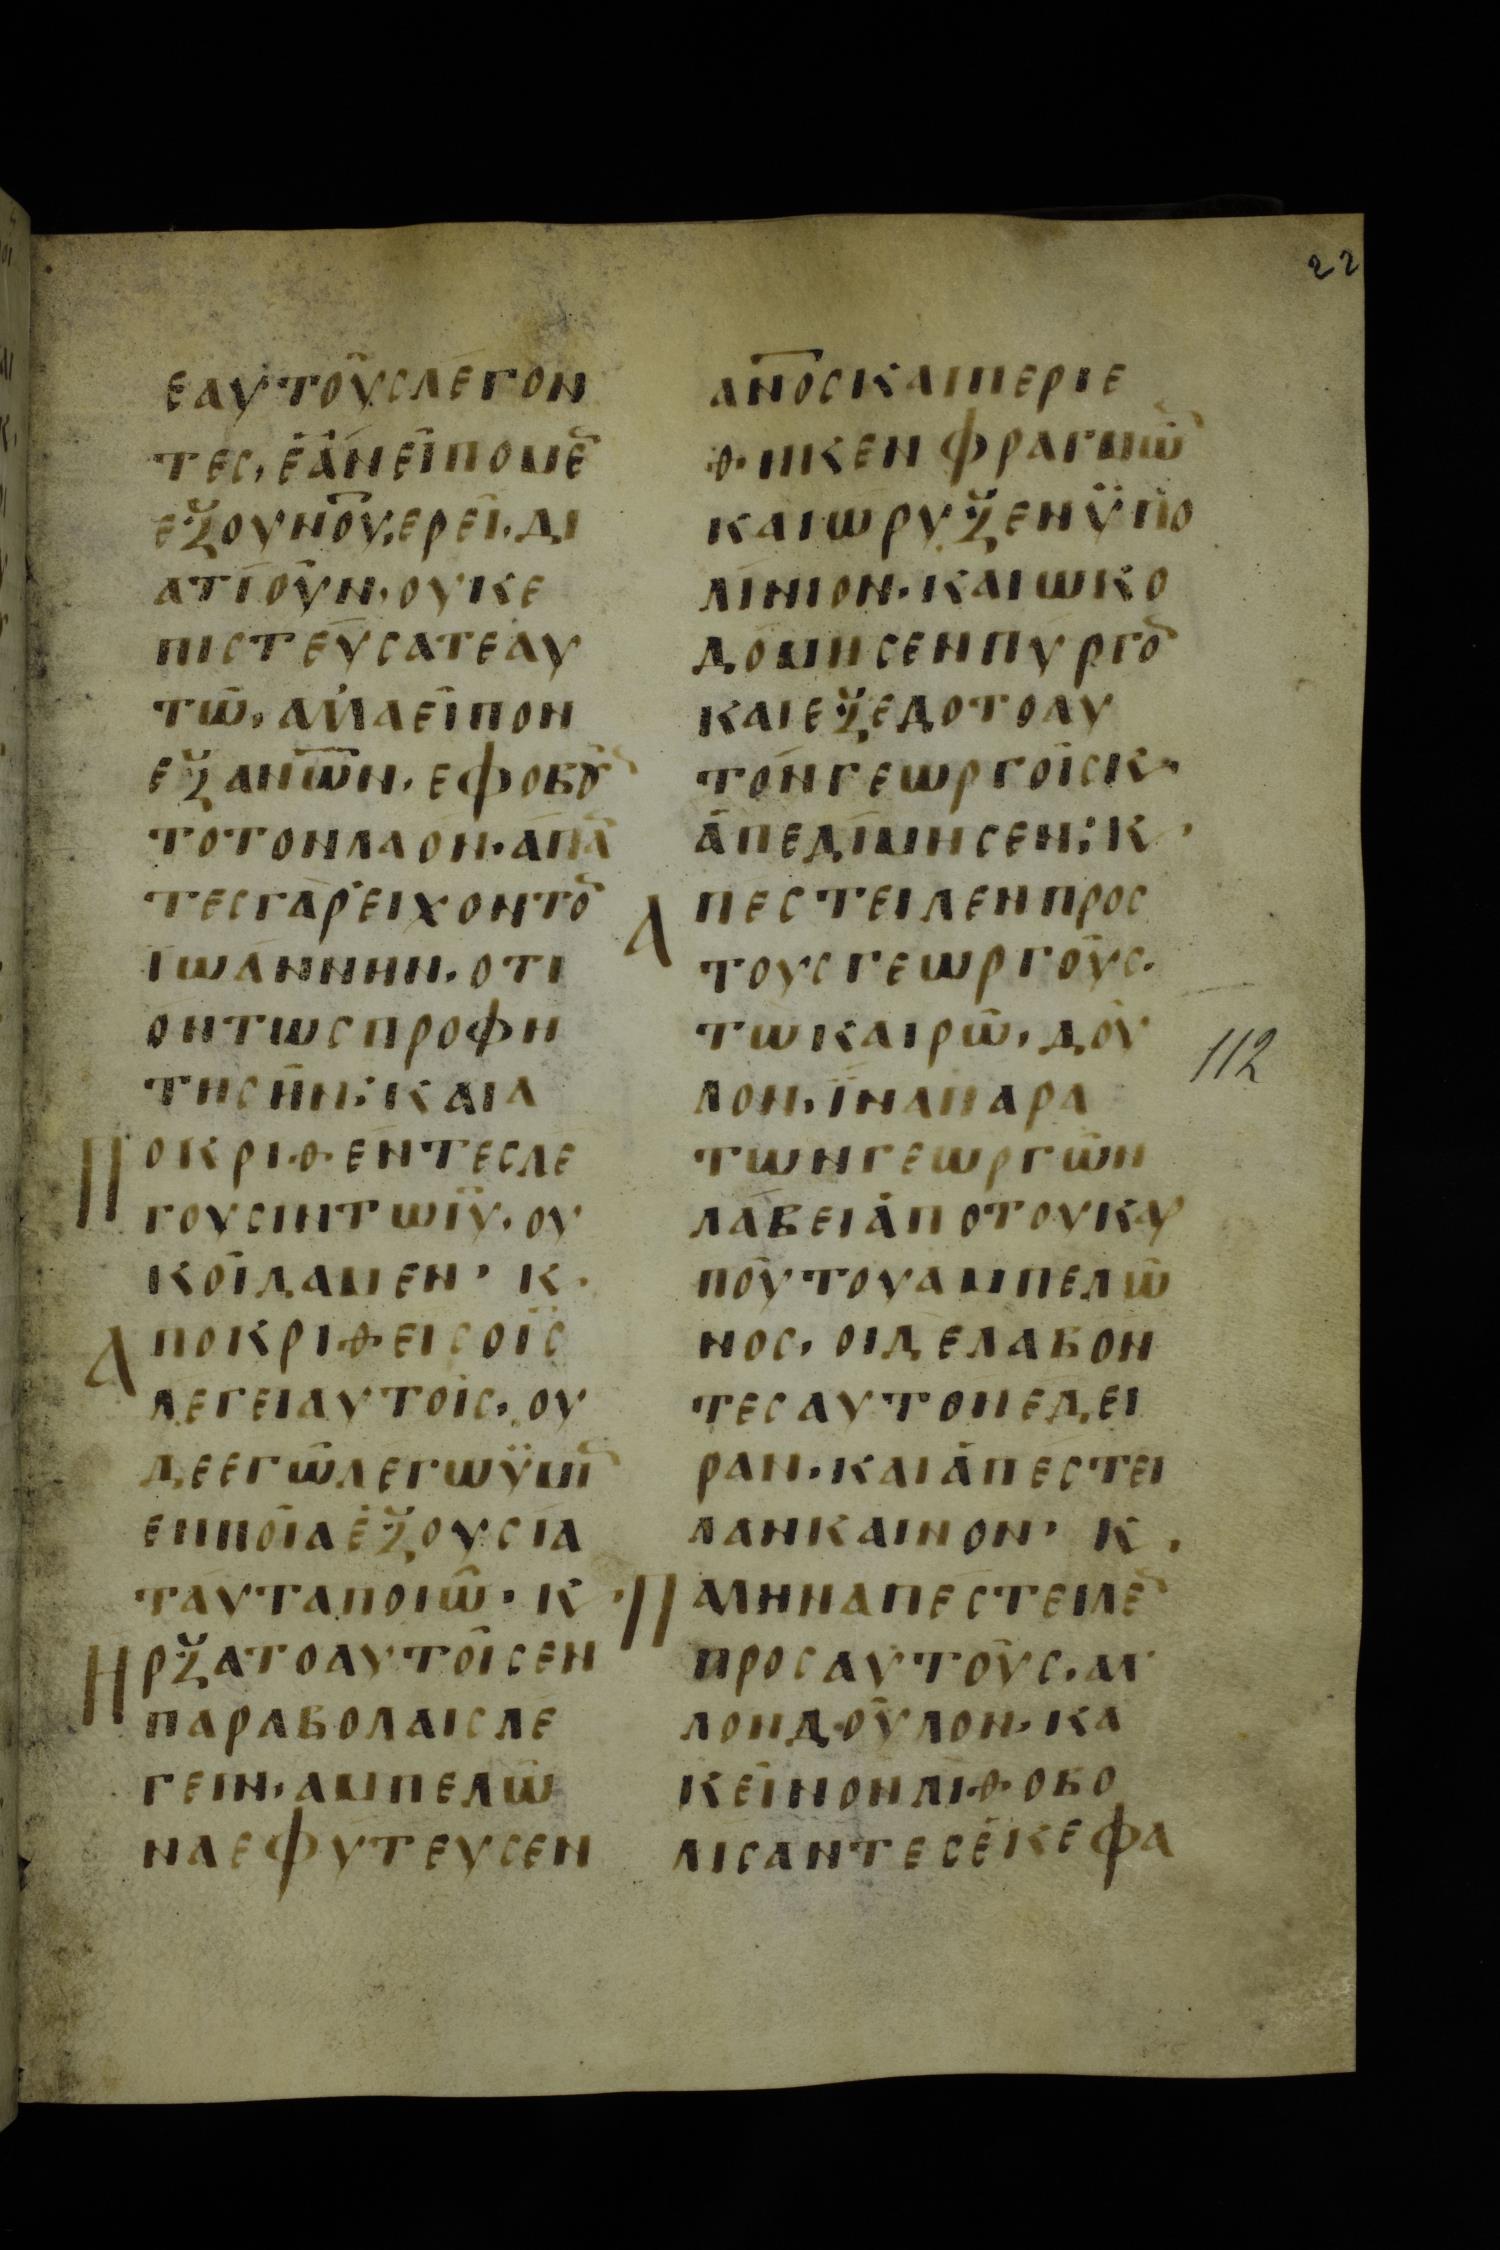 22
ἑαυτοὺς λέγον
τες, ἐὰν εἴπομε̅
ἐξ ουν̅ο̅υ, ἐρεῖ, δι
ατί οὖν, οὐκ ἐ
πιστεύσατε αυ
τῶ, ἀλλὰ εἴπον
ἐξ αν̅ω̅ν, ἐφοβοῦ
το τὸν λαὸν, ἅπα̅
τες γὰρ εἶχον το̅
ϊωάννην, ὅτι
ὄντως προφή
της ἦν· καὶ α
ποκριθέντες λέ
γουσιν τῶ ιυ̅, ου
κ οἴδαμεν, κ
αποκριθεὶς ὁ ις̅
λέγει αὐτοῖς, ου
δὲ ἐγὼ λέγω ϋμῖ̅
ἐν ποία ἐξουσία
ταῦτα ποιῶ, κ
ηρξατο αὐτοῖς ἐν
παραβολαῖς λέ
γειν, ἀμπελῶ
να ἐφύτευσεν
αν̅ο̅ς καὶ περιέ
θηκεν φραγμὸ̅
καὶ ὤρυξεν ϋπο
λίνιον, καὶ ὠκο
δόμησεν πύργο̅
καὶ ἐξέδοτο αυ
τὸν γεωργοῖς κ
ἀπεδίμησεν· κ
απέστειλεν πρὸς
τοὺς γεωργοὺς,
τῶ καιρῶ, δοῦ
λον, ἵνα παρὰ
112
τῶν γεωργῶν
λάβει ἀπὸ τοῦ καρ
ποῦ τοῦ ἀμπελῶ
νος, οἱ δὲ λαβόν
τες αὐτὸν ἔδει
ραν, καὶ ἀπέστει
λαν καινὸν, κ
παλιν ἀπέστειλε̅
πρὸς αὐτοὺς, ἄλ
λον δοῦλον, κα
κεῖνον λιθοβο
λίσαντες ἐκεφα